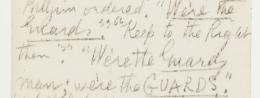 Pilgrim ordered. "Were the
Guards. Keep to the Right
then." "We're the Guards
man: we're the GUARDS."